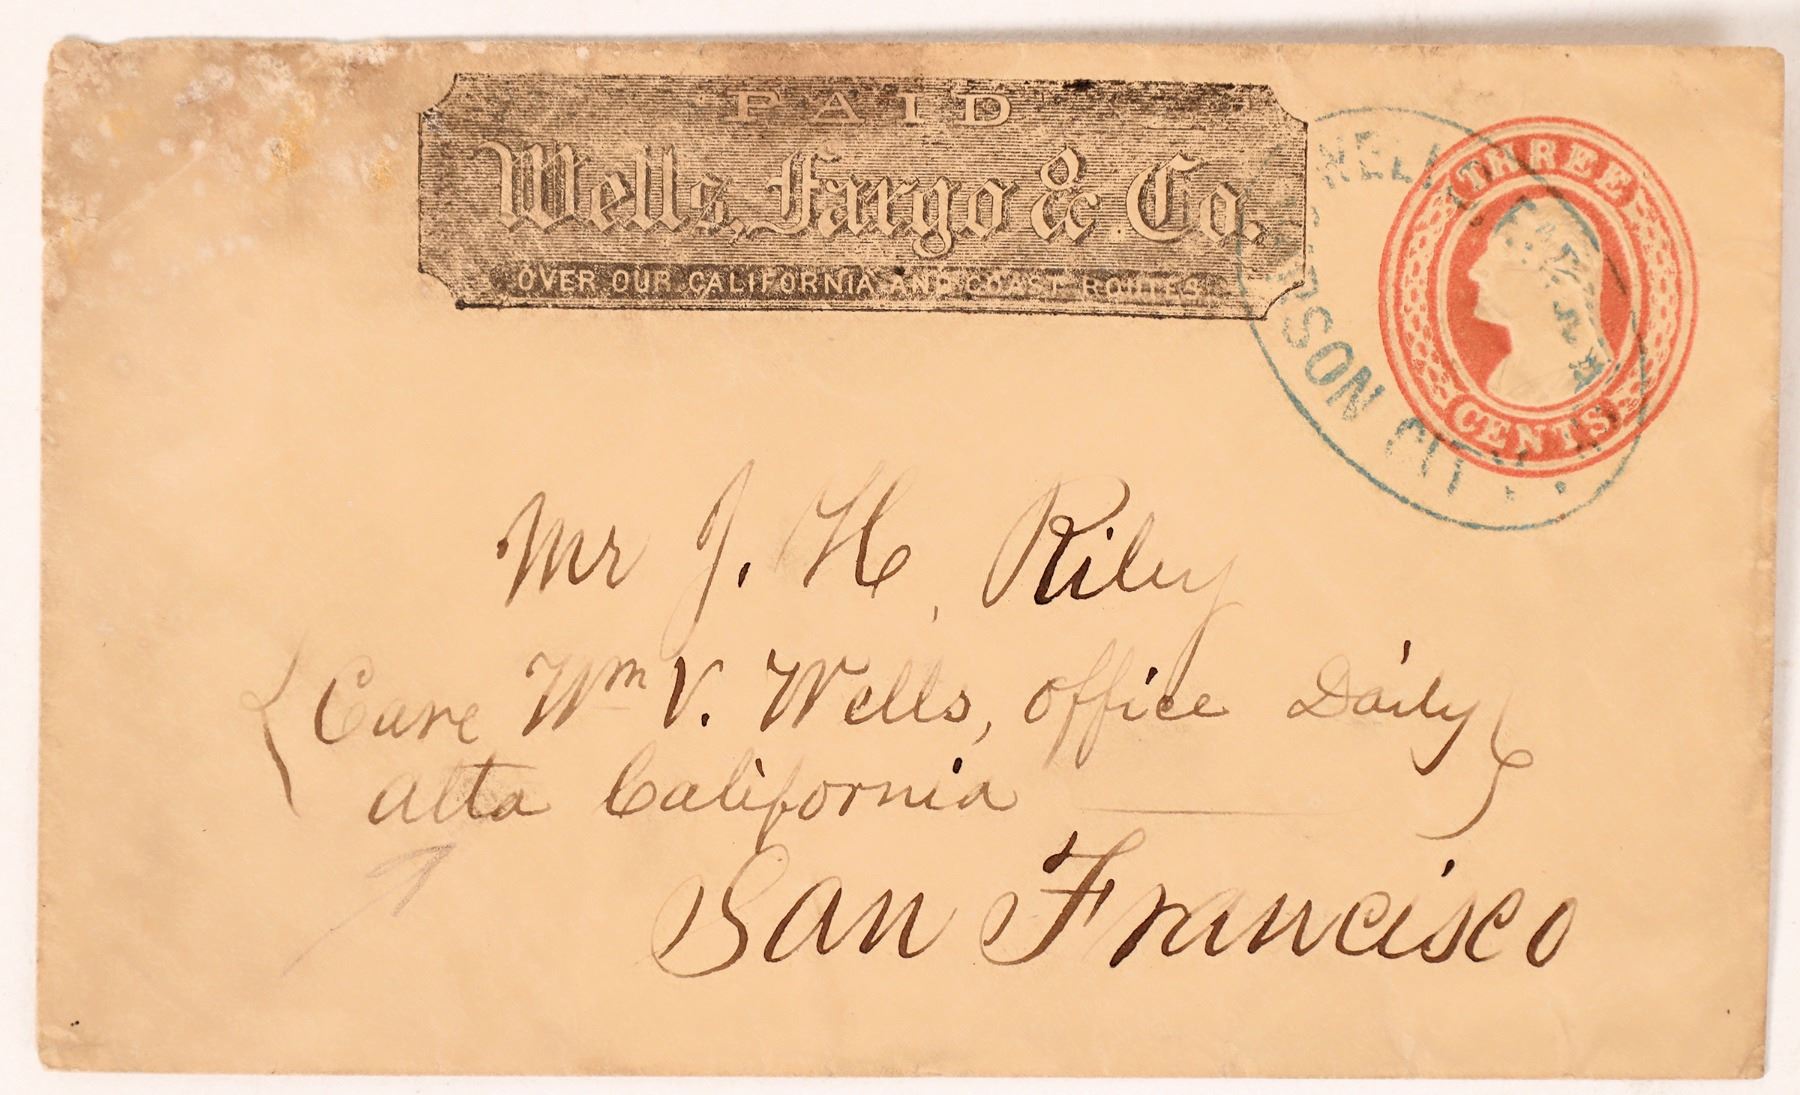 PAID
Wells, Fargo & Co.
OVER OUR CALIFORNIA AND COAST ROUTES.
THREE
CENTS
WELLS
CARSON CITY
Mr J. H. Riley
Care Wm V. Wells, Office Daily
Alta California
San Francisco